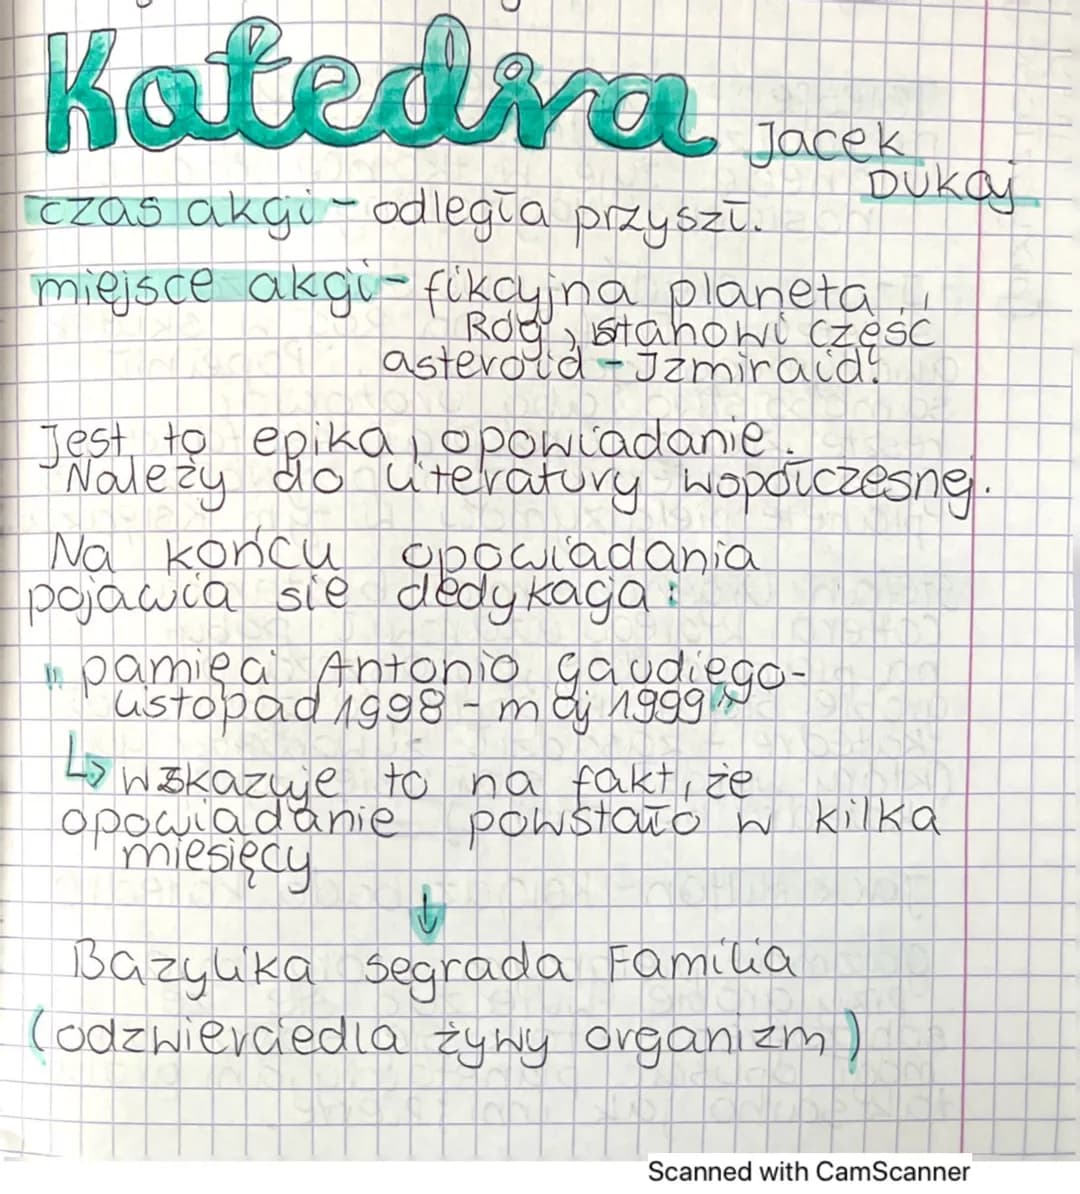 Katedra
Jacek
Dukaj
czas akcji - odległa przyszł.
miejsce akcji - fikcyjna planeta
Rog, stanowi część
asteroid - Izmiraid!
Jest to epika, opowiadanie.
Należy do literatury wopółczesnej.
Na końcu opowiadania
pojawia sie dedykacja:
"pamięci Antonio gaudiego-
listopad 1998 - maj 1999"
↳ wskazuje to na fakt, że
opowiadanie powstało w kilka
miesięcy
↓
Bazylika segrada Familia
(odzwierciedla żywy organizm)
Scanned with CamScanner